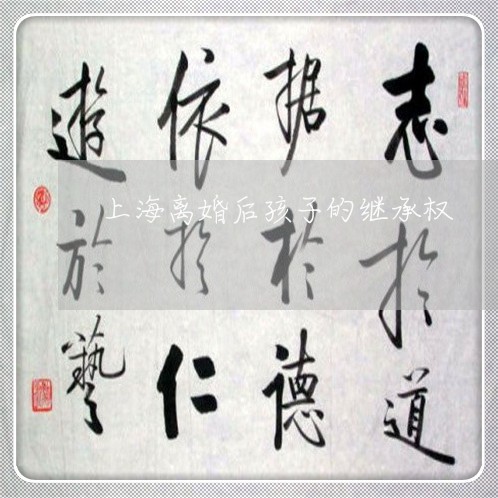 志於道
据於德
依於仁
遊於藝
上海离婚后孩子的继承权